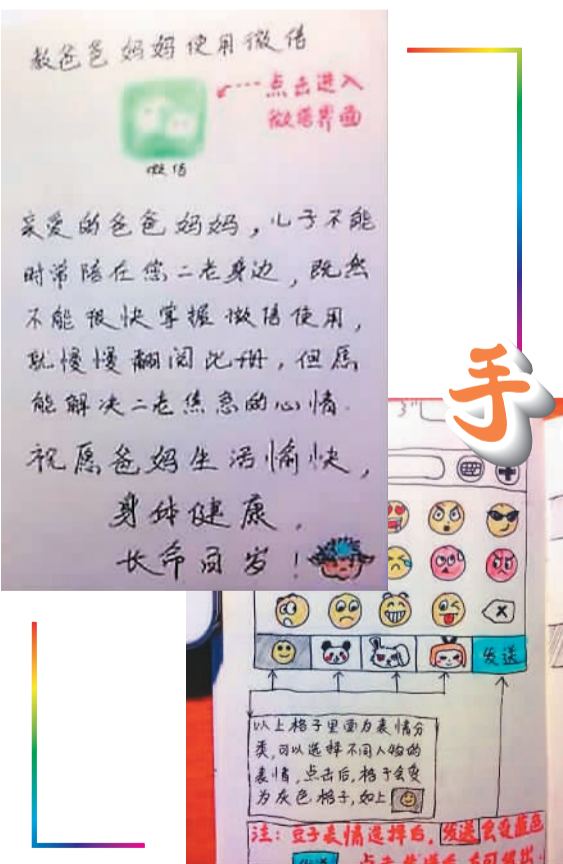 教爸爸妈妈使用微信
点击进入
微信界面
微信
亲爱的爸爸妈妈，儿子不能
时常陪在您二老身边，既然
不能很快掌握微信使用，
就慢慢翻阅此册，但愿
能解决二老焦急的心情.
祝愿爸妈生活愉快，
身体健康，
长命百岁！
手
发送
以上格子里面为表情分
类，可以选择不同人物的
表情，点击后，格子会变
为灰色格子，如上
注：豆子表情选择后，发送会变蓝色
发送
点击